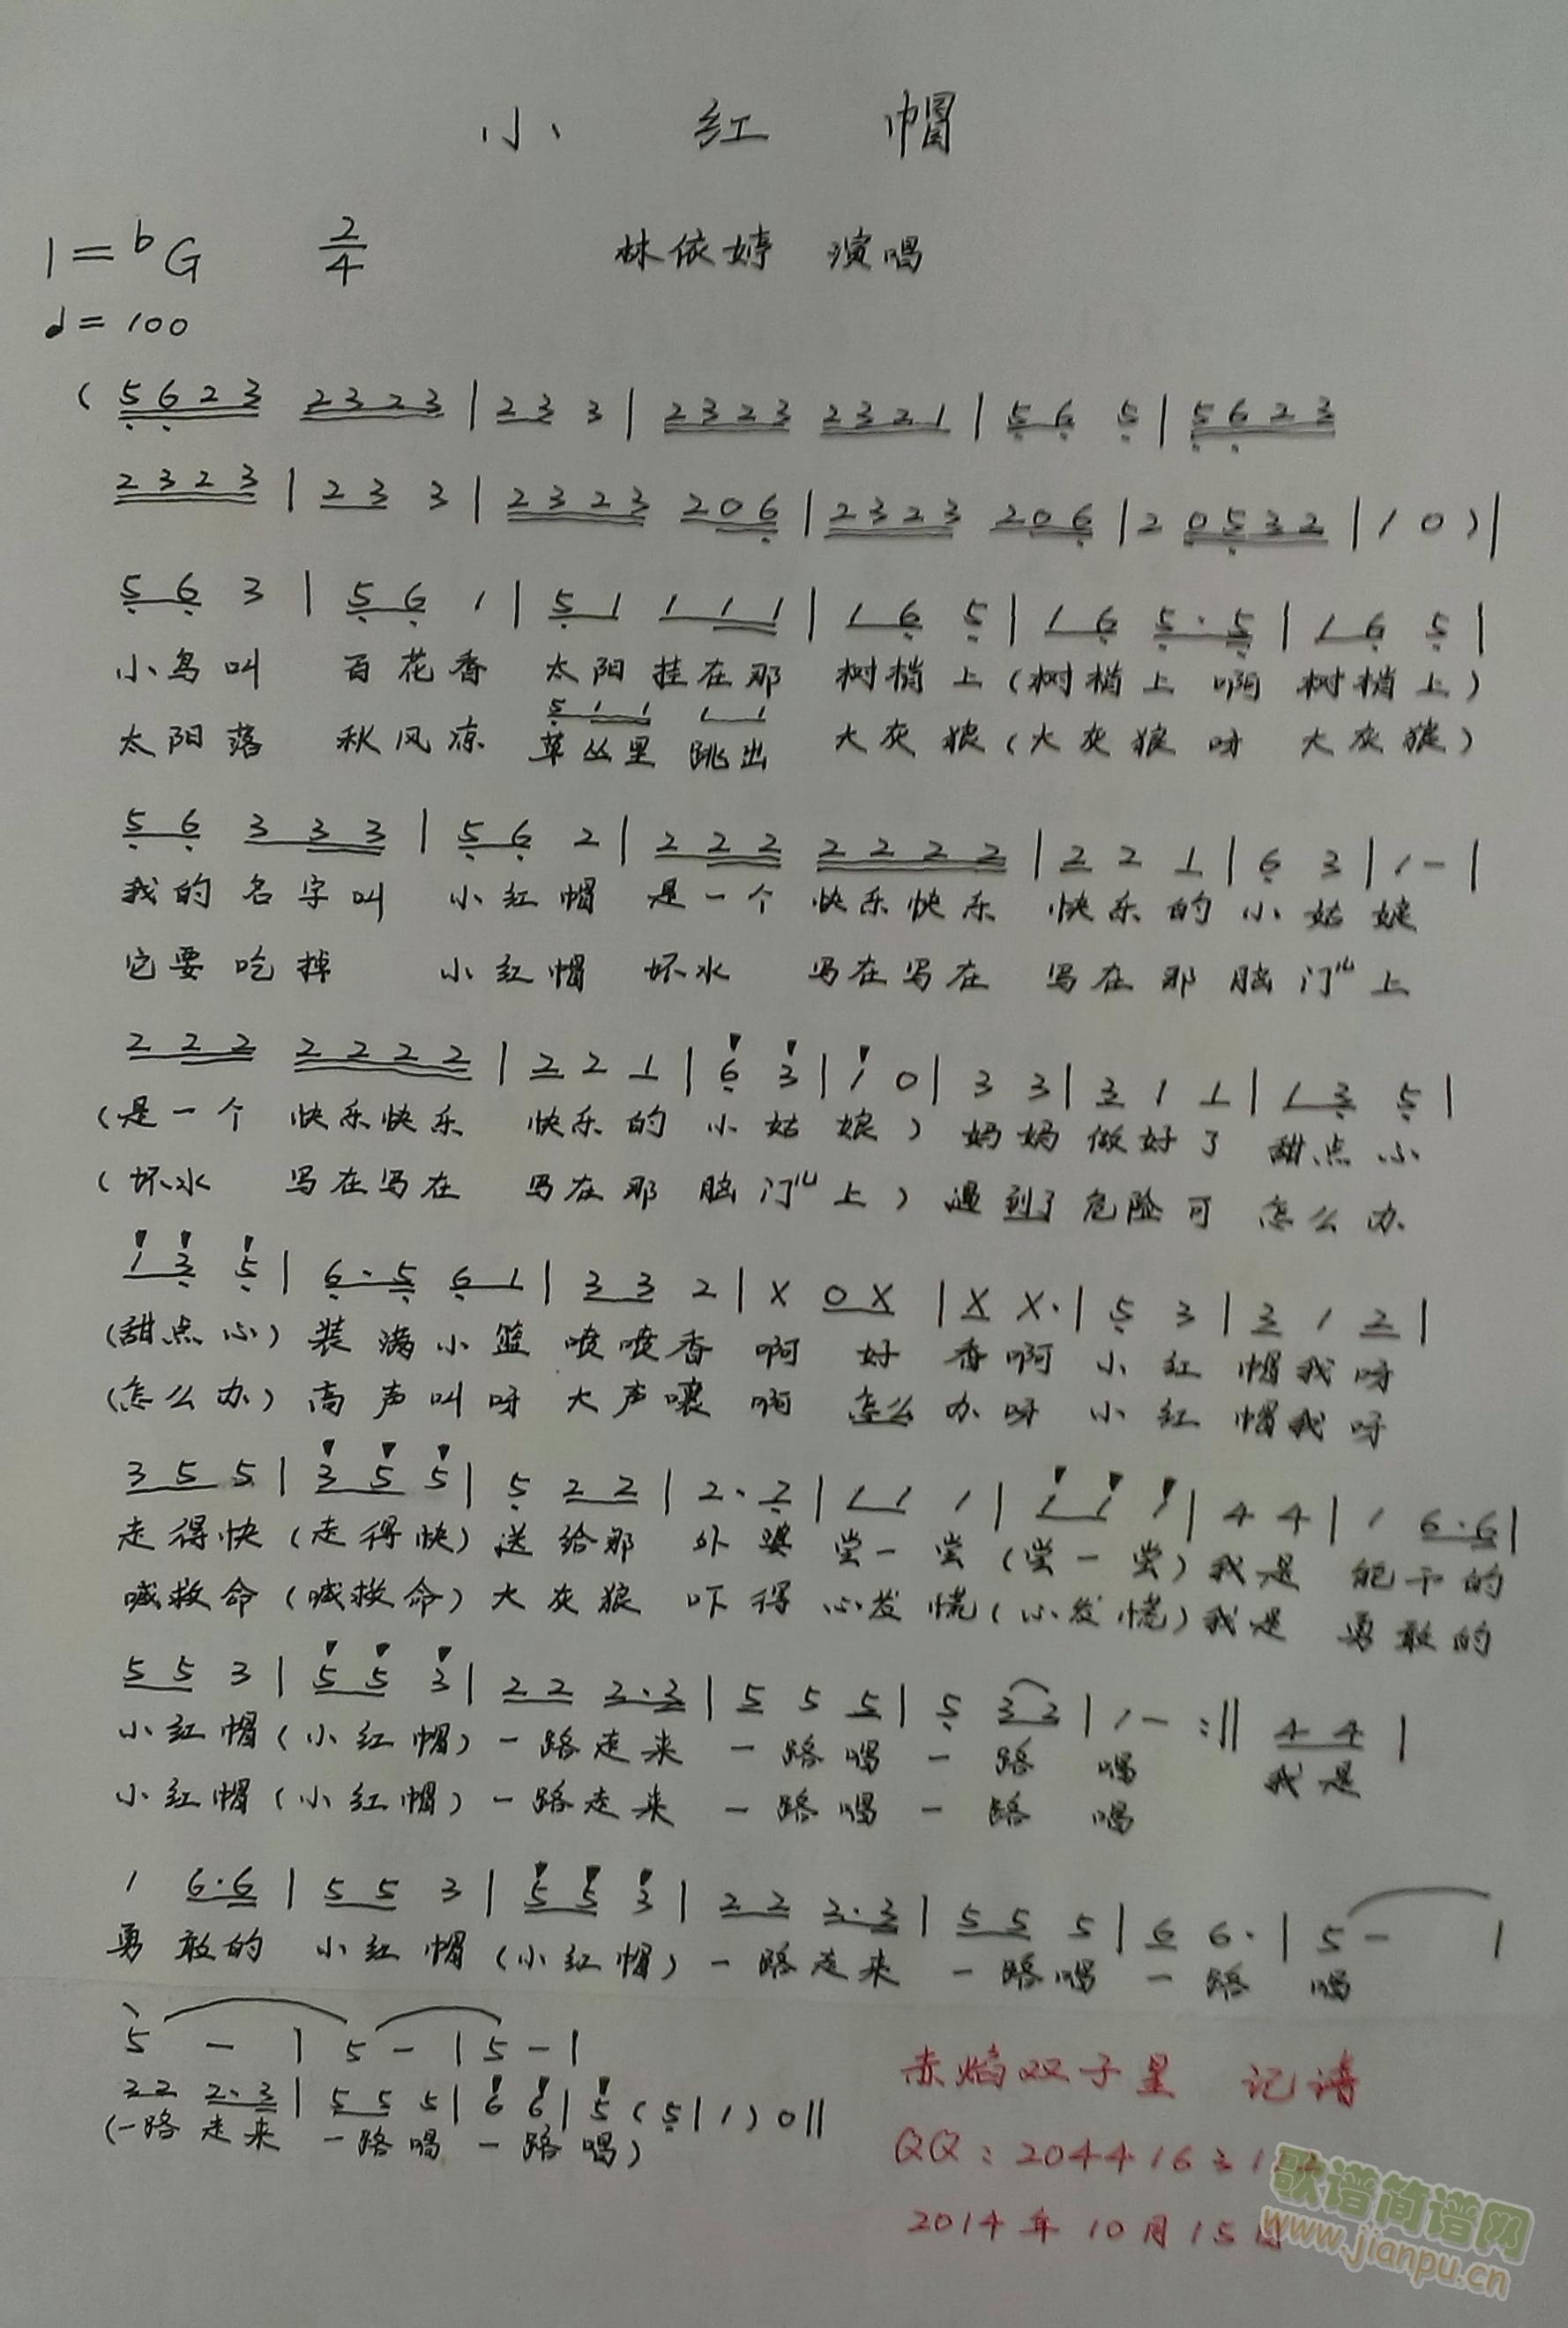 小 红 帽
1=bG 2/4 林依婷 演唱
♩=100
( 5 6 2 3 2 3 2 3 | 2 3 3 | 2 3 2 3 2 3 2 1 | 5 6 5 | 5 6 2 3
2 3 2 3 | 2 3 3 | 2 3 2 3 2 0 6 | 2 3 2 3 2 0 6 | 2 0 5 3 2 | 1 0 ) |
5 6 3 | 5 6 1 | 5 1 1 1 1 | 1 6 5 | 1 6 5 · 5 | 1 6 5 |
小鸟叫 百花香 太阳挂在那 树梢上(树梢上 啊 树梢上)
5 1 1 1 1
太阳落 秋风凉 草丛里 跳出 大灰狼(大灰狼 呀 大灰狼)
5 6 3 3 3 | 5 6 2 | 2 2 2 2 2 2 2 | 2 2 1 | 6 3 | 1 - |
我的名字叫 小红帽 是一个 快乐快乐 快乐的小姑娘
它要吃掉 小红帽 坏水 写在写在 写在那脑门儿上
2 2 2 2 2 2 2 | 2 2 1 | 6 3 | 1 0 | 3 3 | 3 1 1 | 1 3 5 |
(是一个 快乐快乐 快乐的小姑娘) 妈妈做好了 甜点心
(坏水 写在写在 写在那脑门儿上) 遇到了危险可 怎么办
1 3 5 | 6 · 5 6 1 | 3 3 2 | X 0 X | X X · | 5 3 | 3 1 2 |
(甜点心) 装满小篮 喷喷香 啊 好 香啊 小红 帽我呀
(怎么办) 高声叫呀 大声嚷 啊 怎么办呀 小红 帽我呀
3 5 5 | 3 5 5 | 5 2 2 | 2 · 2 | 1 1 1 | 1 1 1 | 4 4 | 1 6 · 6 |
走得快(走得快) 送给那 外婆 尝一尝(尝一尝)我是 能干的
喊救命(喊救命) 大灰狼 吓得 心发慌(心发慌)我是 勇敢的
5 5 3 | 5 5 3 | 2 2 2 · 3 | 5 5 5 | 5 3 2 | 1 - :|| 4 4 |
小红帽(小红帽)一路走来 一路唱一路 唱 我是
小红帽(小红帽)一路走来 一路唱一路 唱
1 6 · 6 | 5 5 3 | 5 5 3 | 2 2 2 · 3 | 5 5 5 | 6 6 · | 5 - |
勇敢的 小红帽(小红帽)一路走来 一路唱一路 唱
5 - | 5 - | 5 - |
2 2 2 · 3 | 5 5 5 | 6 6 | 5 ( 5 | 1 ) 0 ||
(一路走来 一路唱一路唱)
赤焰双子星 记谱
QQ:
2014年10月15日
歌谱简谱网
www.jianpu.cn